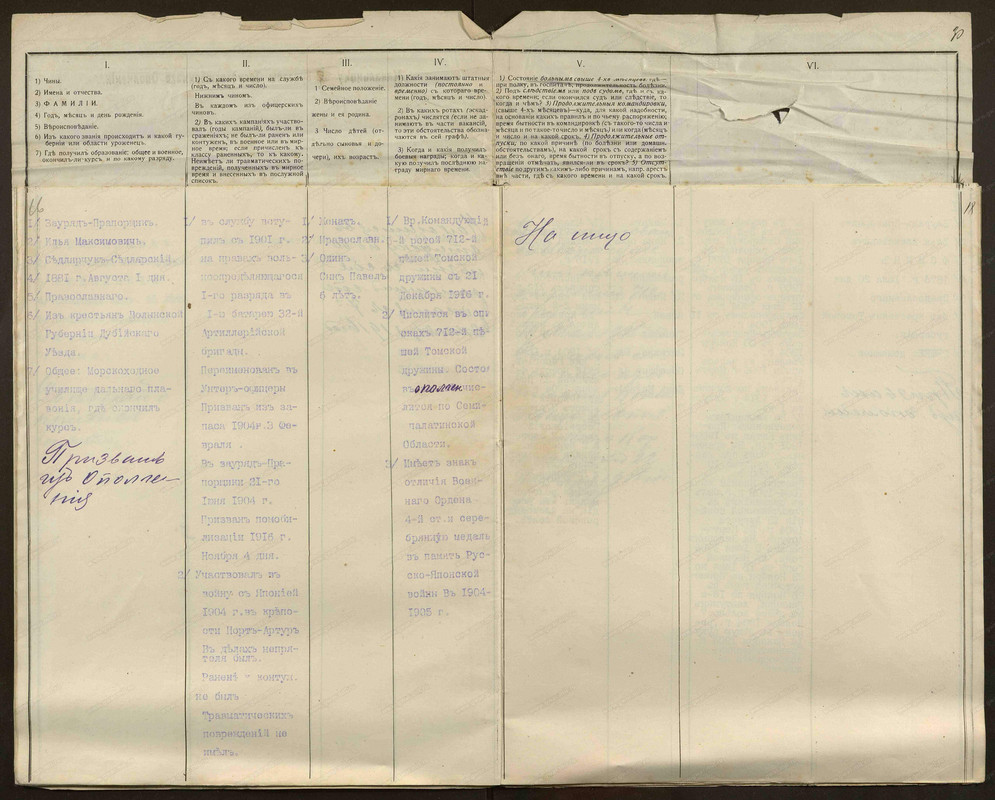 30
I.
1) Чинъ.
2) Имена и отчества.
3) ФАМИЛІИ.
4) Годъ, мѣсяцъ и день рожденія.
5) Вѣроисповѣданіе.
6) Изъ какого званія происходитъ и какой гу-
берніи или области уроженецъ.
7) Гдѣ получилъ образованіе: общее и военное,
окончилъ-ли-курсъ и по какому разряду.
II.
1) Съ какого времени на службѣ
(годъ, мѣсяцъ и число).
Въ каждомъ изъ офицерскихъ
чиновъ.
Нижнимъ чиномъ.
2) Въ какихъ кампаніяхъ участво-
валъ (годы кампаній), былъ-ли въ
сраженіяхъ; не былъ-ли раненъ или
контуженъ, въ военное или въ мир-
ное время; если причисленъ къ
классу раненныхъ, то къ какому.
Неимѣетъ ли травматическихъ по-
врежденій, полученныхъ въ мирное
время и внесенныхъ въ послужной
списокъ.
III.
1) Семейное положеніе.
2) Вѣроисповѣданіе
жены и ея родина.
3) Число дѣтей (от-
дѣльно сыновья и до-
чери), ихъ возрастъ.
IV.
1) Какія занимаютъ штатныя
должности (постоянно и
временно) съ котораго вре-
мени (годъ, мѣсяцъ и число).
2) Въ какихъ ротахъ (эскад-
ронахъ) числятся (если не за-
нимаютъ въ части вакансій,
то эти обстоятельства обозна-
чаются въ сей графѣ).
3) Когда и какія получилъ
боевыя награды; когда и ка-
кую получилъ послѣднюю на-
граду мирнаго времени.
V.
1) Состояніе больнымъ свыше 4-хъ мѣсяцевъ гдѣ—
при полку, въ госпиталѣ, продолжительность болѣзни.
2) Подъ слѣдствіемъ или подъ судомъ, гдѣ и съ ка-
кого времени; если окончился судъ или слѣдствіе, то
когда и чѣмъ? 3) Продолжительныя командировки,
(свыше 4-хъ мѣсяцевъ)—куда, для какой надобности,
на основаніи какихъ правилъ и по чьему распоряженію;
время бытности въ командировкѣ (съ такого-то числа и
мѣсяца и по такое-то число и мѣсяцъ) или когда (мѣсяцъ
и число и на какой срокъ. 4) Продолжительные от-
пуски, по какой причинѣ (по болѣзни или домаш.
обстоятельствамъ), на какой срокъ съ содержаніемъ
или безъ онаго, время бытности въ отпуску, а по воз-
вращеніи отмѣчать, явился-ли въ срокъ? 5) Отсут-
ствіе по другимъ какимъ-либо причинамъ, напр. арестъ
внѣ части, гдѣ съ какого времени и на какой срокъ.
VI.
18
66
1/ Зауряд-Прапорщикъ.
2/ Илья Максимовичъ.
3/ Сѣдлярчукъ-Сѣдлярскій.
4/ 1881 г. Августа 1 дня.
5/ Православнаго.
6/ Изъ крестьянъ Волынской
Губерніи Дубнійскаго
Уѣзда.
7/ Общее: Мореходное
училище дальняго пла-
ванія, гдѣ окончилъ
курсъ.
Призванъ
изъ Ополче-
нія
1/ въ службу всту-
пилъ съ 1901 г.
на правахъ воль-
ноопредѣляющагося
1-го разряда въ
1-ю батарею 32-й
Артиллерійской
бригады.
Переименованъ въ
Унтеръ-офицеры
Призванъ изъ за-
паса 1904г. 3 Фе-
враля.
Въ зауряд-Пра-
порщики 21-го
Іюня 1904 г.
Призванъ помоби-
лизаціи 1916 г.
Ноября 4 дня.
2/ Участвовалъ въ
войну съ Японіей
1904 г. въ крѣпо-
сти Портъ-Артуръ
Въ дѣлахъ непрія-
теля былъ.
Раненъ и контуж.
не былъ
Травматическихъ
поврежденій не
имѣлъ.
1/ Женатъ.
2/ Православн.
3/ Одинъ
Сынъ Павелъ
6 лѣтъ.
1/ Вр. Командующій
3-й ротой 712-й
пѣшей Томской
дружины съ 21
Декабря 1916 г.
2/ Числится въ спи
скахъ 712-й пѣ-
шей Томской
дружины. Состо
въ ополчен числ-
лится по Семи-
палатинской
Области.
3/ Имѣетъ знакъ
отличія Воен-
наго Ордена
4-й ст. и сере-
бряную медаль
въ память Рус-
ско-Японской
войны Въ 1904-
1905 г.
На лицо